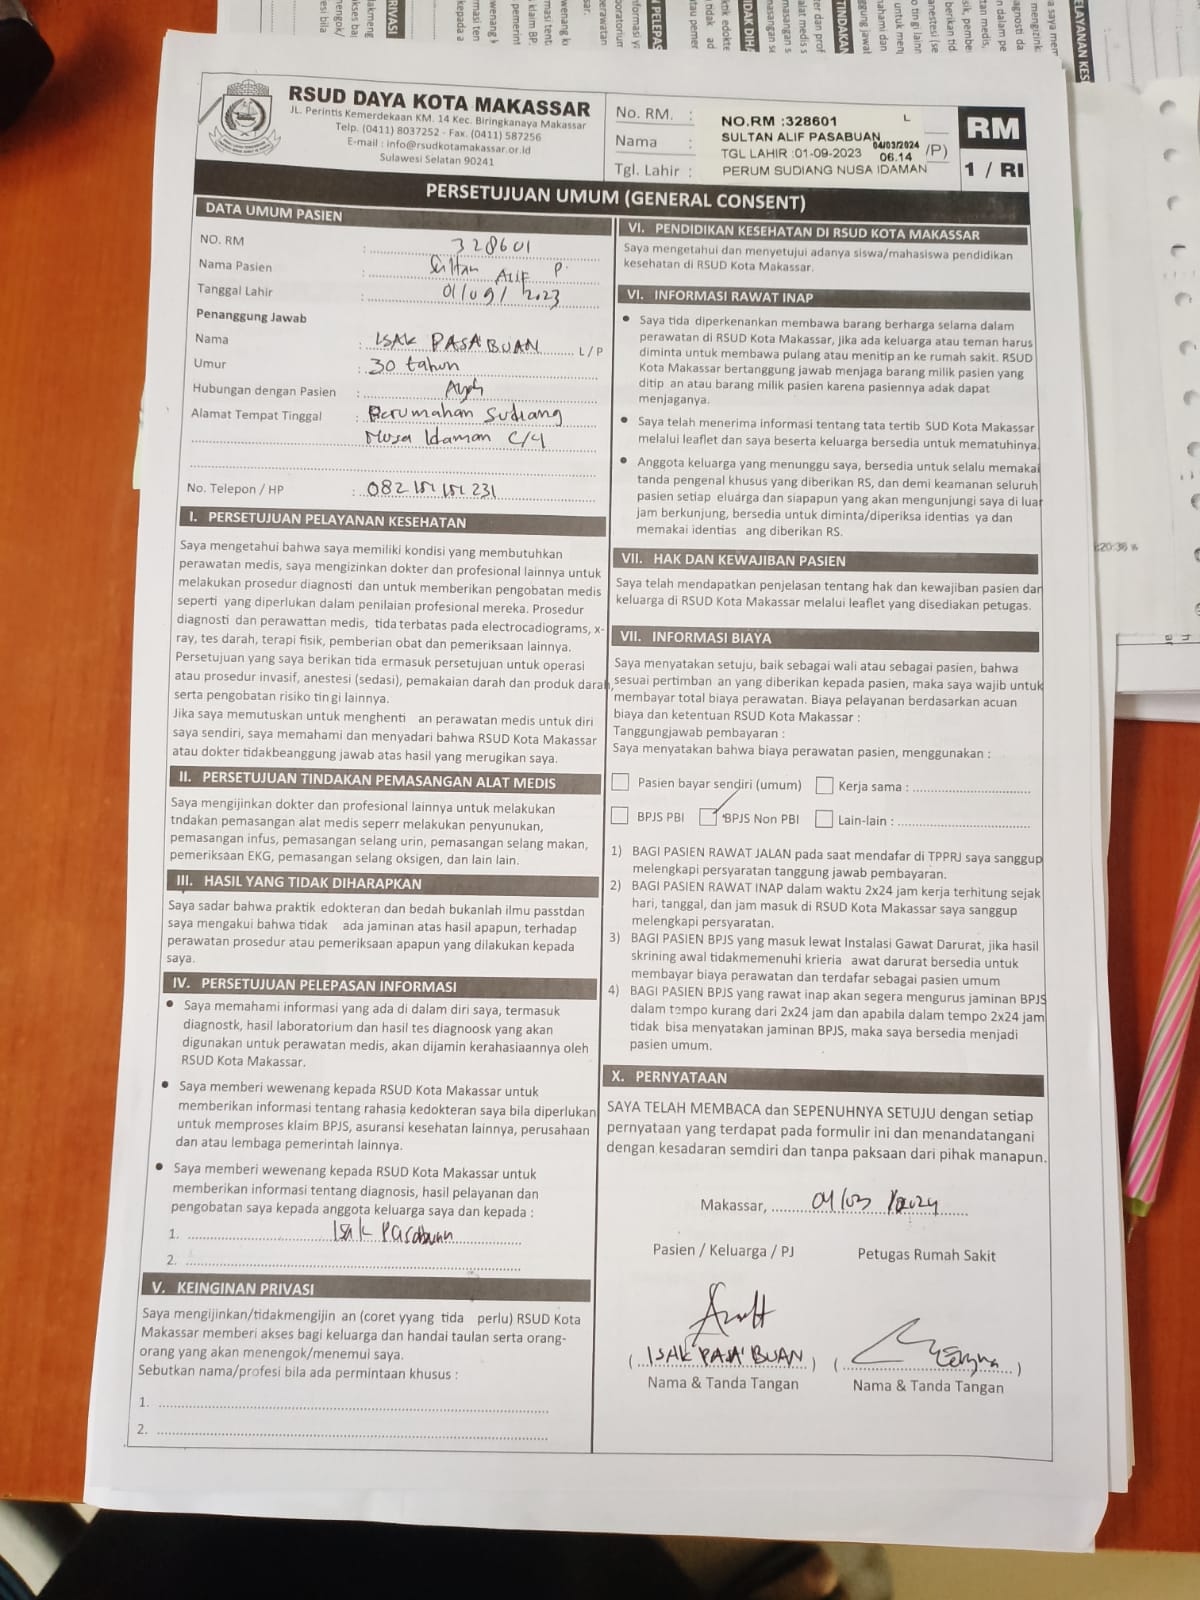 RSUD DAYA KOTA MAKASSAR
JL. Perintis Kemerdekaan KM. 14 Kec. Biringkanaya Makassar
Telp. (0411) 8037252 - Fax. (0411) 587256
E-mail : info@rsudkotamakassar.or.id
Sulawesi Selatan 90241
No. RM. :
Nama :
Tgl. Lahir :
NO.RM :328601 L
SULTAN ALIF PASABUAN
TGL LAHIR :01-09-2023
04/03/2024
06.14
PERUM SUDIANG NUSA IDAMAN
/P)
RM
1 / RI
PERSETUJUAN UMUM (GENERAL CONSENT)
DATA UMUM PASIEN
NO. RM : 328601
Nama Pasien : Sultan ALIF P.
Tanggal Lahir : 01/09/2023
Penanggung Jawab
Nama : ISAK PASA'BUAN L / P
Umur : 30 tahun
Hubungan dengan Pasien : Ayah
Alamat Tempat Tinggal : Perumahan Sudiang
Nusa Idaman C/4
No. Telepon / HP :
I. PERSETUJUAN PELAYANAN KESEHATAN
Saya mengetahui bahwa saya memiliki kondisi yang membutuhkan
perawatan medis, saya mengizinkan dokter dan profesional lainnya untuk
melakukan prosedur diagnosti dan untuk memberikan pengobatan medis
seperti yang diperlukan dalam penilaian profesional mereka. Prosedur
diagnosti dan perawattan medis, tida terbatas pada electrocadiograms, x-
ray, tes darah, terapi fisik, pemberian obat dan pemeriksaan lainnya.
Persetujuan yang saya berikan tida ermasuk persetujuan untuk operasi
atau prosedur invasif, anestesi (sedasi), pemakaian darah dan produk darah,
serta pengobatan risiko tin gi lainnya.
Jika saya memutuskan untuk menghenti an perawatan medis untuk diri
saya sendiri, saya memahami dan menyadari bahwa RSUD Kota Makassar
atau dokter tidakbeanggung jawab atas hasil yang merugikan saya.
II. PERSETUJUAN TINDAKAN PEMASANGAN ALAT MEDIS
Saya mengijinkan dokter dan profesional lainnya untuk melakukan
tndakan pemasangan alat medis seperr melakukan penyunukan,
pemasangan infus, pemasangan selang urin, pemasangan selang makan,
pemeriksaan EKG, pemasangan selang oksigen, dan lain lain.
III. HASIL YANG TIDAK DIHARAPKAN
Saya sadar bahwa praktik edokteran dan bedah bukanlah ilmu passtdan
saya mengakui bahwa tidak ada jaminan atas hasil apapun, terhadap
perawatan prosedur atau pemeriksaan apapun yang dilakukan kepada
saya.
IV. PERSETUJUAN PELEPASAN INFORMASI
• Saya memahami informasi yang ada di dalam diri saya, termasuk
diagnostk, hasil laboratorium dan hasil tes diagnoosk yang akan
digunakan untuk perawatan medis, akan dijamin kerahasiaannya oleh
RSUD Kota Makassar.
• Saya memberi wewenang kepada RSUD Kota Makassar untuk
memberikan informasi tentang rahasia kedokteran saya bila diperlukan
untuk memproses klaim BPJS, asuransi kesehatan lainnya, perusahaan
dan atau lembaga pemerintah lainnya.
• Saya memberi wewenang kepada RSUD Kota Makassar untuk
memberikan informasi tentang diagnosis, hasil pelayanan dan
pengobatan saya kepada anggota keluarga saya dan kepada :
1. Isak Pasabuan
2.
V. KEINGINAN PRIVASI
Saya mengijinkan/tidakmengijin an (coret yyang tida perlu) RSUD Kota
Makassar memberi akses bagi keluarga dan handai taulan serta orang-
orang yang akan menengok/menemui saya.
Sebutkan nama/profesi bila ada permintaan khusus :
1.
2.
VI. PENDIDIKAN KESEHATAN DI RSUD KOTA MAKASSAR
Saya mengetahui dan menyetujui adanya siswa/mahasiswa pendidikan
kesehatan di RSUD Kota Makassar.
VI. INFORMASI RAWAT INAP
• Saya tida diperkenankan membawa barang berharga selama dalam
perawatan di RSUD Kota Makassar, jika ada keluarga atau teman harus
diminta untuk membawa pulang atau menitip an ke rumah sakit. RSUD
Kota Makassar bertanggung jawab menjaga barang milik pasien yang
ditip an atau barang milik pasien karena pasiennya adak dapat
menjaganya.
• Saya telah menerima informasi tentang tata tertib SUD Kota Makassar
melalui leaflet dan saya beserta keluarga bersedia untuk mematuhinya.
• Anggota keluarga yang menunggu saya, bersedia untuk selalu memakai
tanda pengenal khusus yang diberikan RS, dan demi keamanan seluruh
pasien setiap eluarga dan siapapun yang akan mengunjungi saya di luar
jam berkunjung, bersedia untuk diminta/diperiksa identias ya dan
memakai identias ang diberikan RS.
VII. HAK DAN KEWAJIBAN PASIEN
Saya telah mendapatkan penjelasan tentang hak dan kewajiban pasien dan
keluarga di RSUD Kota Makassar melalui leaflet yang disediakan petugas.
VII. INFORMASI BIAYA
Saya menyatakan setuju, baik sebagai wali atau sebagai pasien, bahwa
sesuai pertimban an yang diberikan kepada pasien, maka saya wajib untuk
membayar total biaya perawatan. Biaya pelayanan berdasarkan acuan
biaya dan ketentuan RSUD Kota Makassar :
Tanggungjawab pembayaran :
Saya menyatakan bahwa biaya perawatan pasien, menggunakan :
Pasien bayar sendiri (umum) Kerja sama :
BPJS PBI BPJS Non PBI Lain-lain :
1) BAGI PASIEN RAWAT JALAN pada saat mendafar di TPPRJ saya sanggup
melengkapi persyaratan tanggung jawab pembayaran.
2) BAGI PASIEN RAWAT INAP dalam waktu 2x24 jam kerja terhitung sejak
hari, tanggal, dan jam masuk di RSUD Kota Makassar saya sanggup
melengkapi persyaratan.
3) BAGI PASIEN BPJS yang masuk lewat Instalasi Gawat Darurat, jika hasil
skrining awal tidakmemenuhi krieria awat darurat bersedia untuk
membayar biaya perawatan dan terdafar sebagai pasien umum
4) BAGI PASIEN BPJS yang rawat inap akan segera mengurus jaminan BPJS
dalam tempo kurang dari 2x24 jam dan apabila dalam tempo 2x24 jam
tidak bisa menyatakan jaminan BPJS, maka saya bersedia menjadi
pasien umum.
X. PERNYATAAN
SAYA TELAH MEMBACA dan SEPENUHNYA SETUJU dengan setiap
pernyataan yang terdapat pada formulir ini dan menandatangani
dengan kesadaran semdiri dan tanpa paksaan dari pihak manapun.
Makassar, 04/03
Pasien / Keluarga / PJ Petugas Rumah Sakit
( ISAK PASA'BUAN ) ( )
Nama & Tanda Tangan Nama & Tanda Tangan